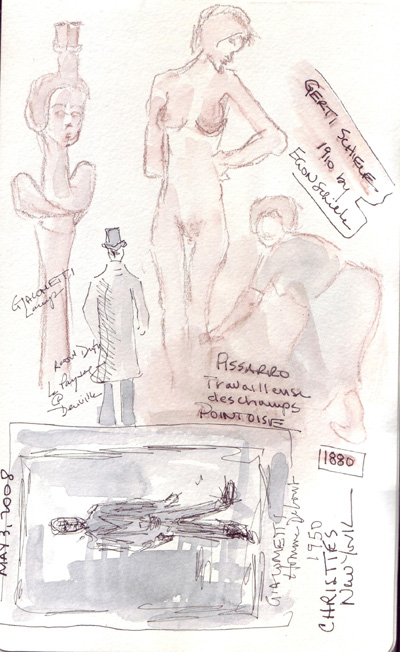 GERTI SCHIELE
1910 by
EGON Schiele
GIACOMETTI
Lamp
Raoul Dufy
@
Deauville
PISSARRO
Travailleuse
des champs
PONTOISE
1880
MAY 3, 2008
GIACOMETTI
Homme Debout
1950
CHRISTIES
New York